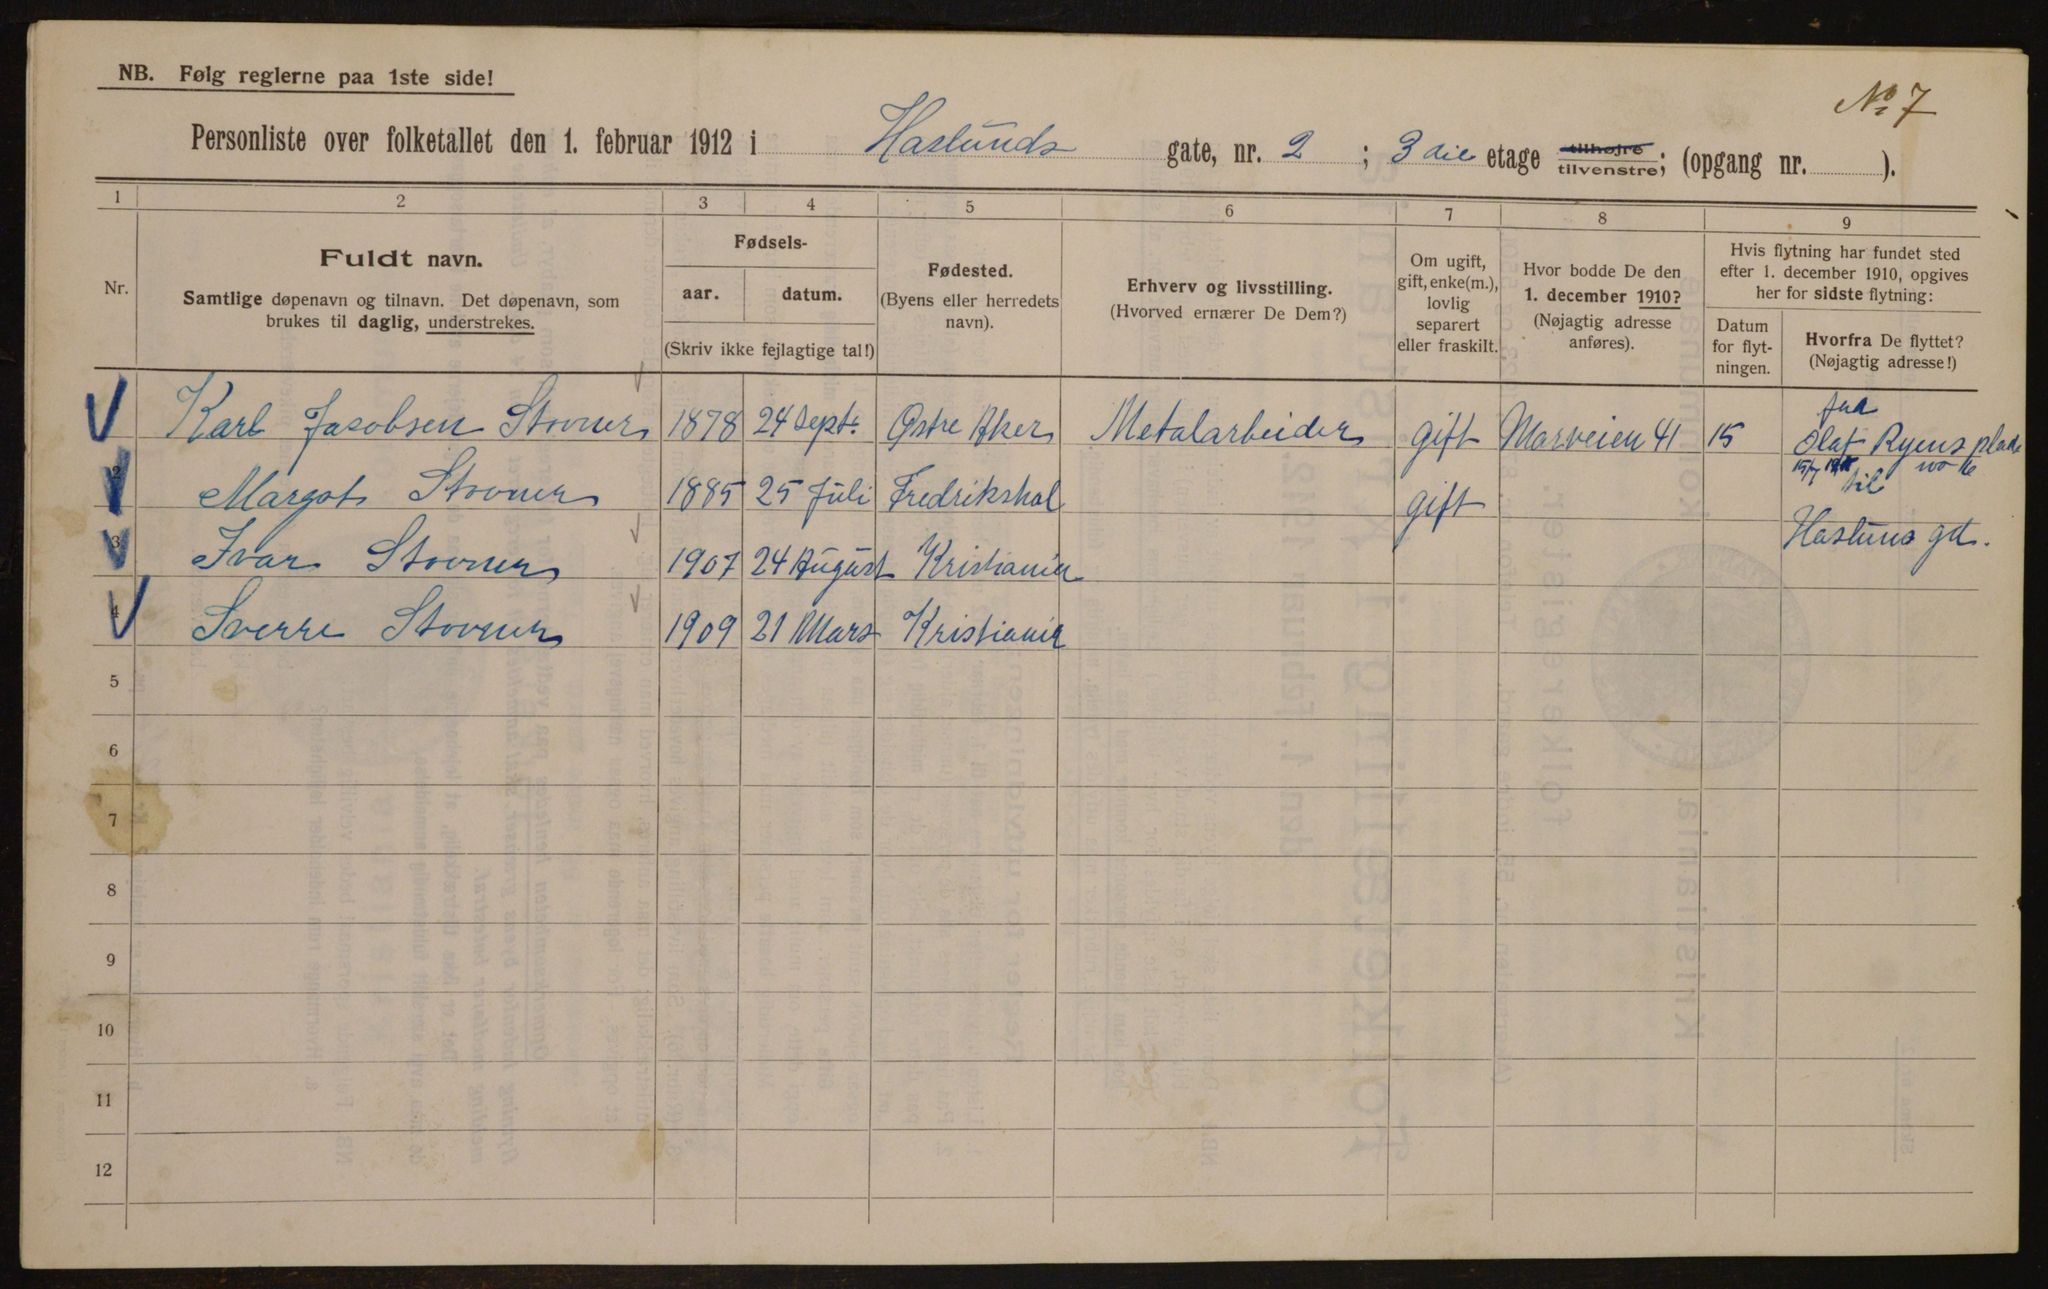 NB. Følg reglerne paa 1ste side!
No 7
Personliste over folketallet den 1. februar 1912 i Haslunds gate, nr. 2 ; 3 die etage tilhøjre tilvenstre; (opgang nr. ).
1 2 3 4 5 6 7 8 9
Nr.
Fuldt navn.
Samtlige døpenavn og tilnavn. Det døpenavn, som
brukes til daglig, understrekes.
Fødsels-
aar. datum.
(Skriv ikke fejlagtige tal!)
Fødested.
(Byens eller herredets
navn).
Erhverv og livsstilling.
(Hvorved ernærer De Dem?)
Om ugift,
gift, enke(m.),
lovlig
separert
eller fraskilt.
Hvor bodde De den
1. december 1910?
(Nøjagtig adresse
anføres).
Hvis flytning har fundet sted
efter 1. december 1910, opgives
her for sidste flytning:
Datum
for flyt-
ningen.
Hvorfra De flyttet?
(Nøjagtig adresse!)
Karl Jacobsen Stovner 1878 24 Sept. Østre Aker Metalarbeider gift Marveien 41 15 fra Olaf Ryens plads
2 Margot Stovner 1885 25 Juli Fredrikshal gift til
3 Ivar Stovner 1907 24 August Kristiania Haslunds gd.
4 Sverre Stovner 1909 21 Mars Kristiania
5
6
7
8
9
10
11
12